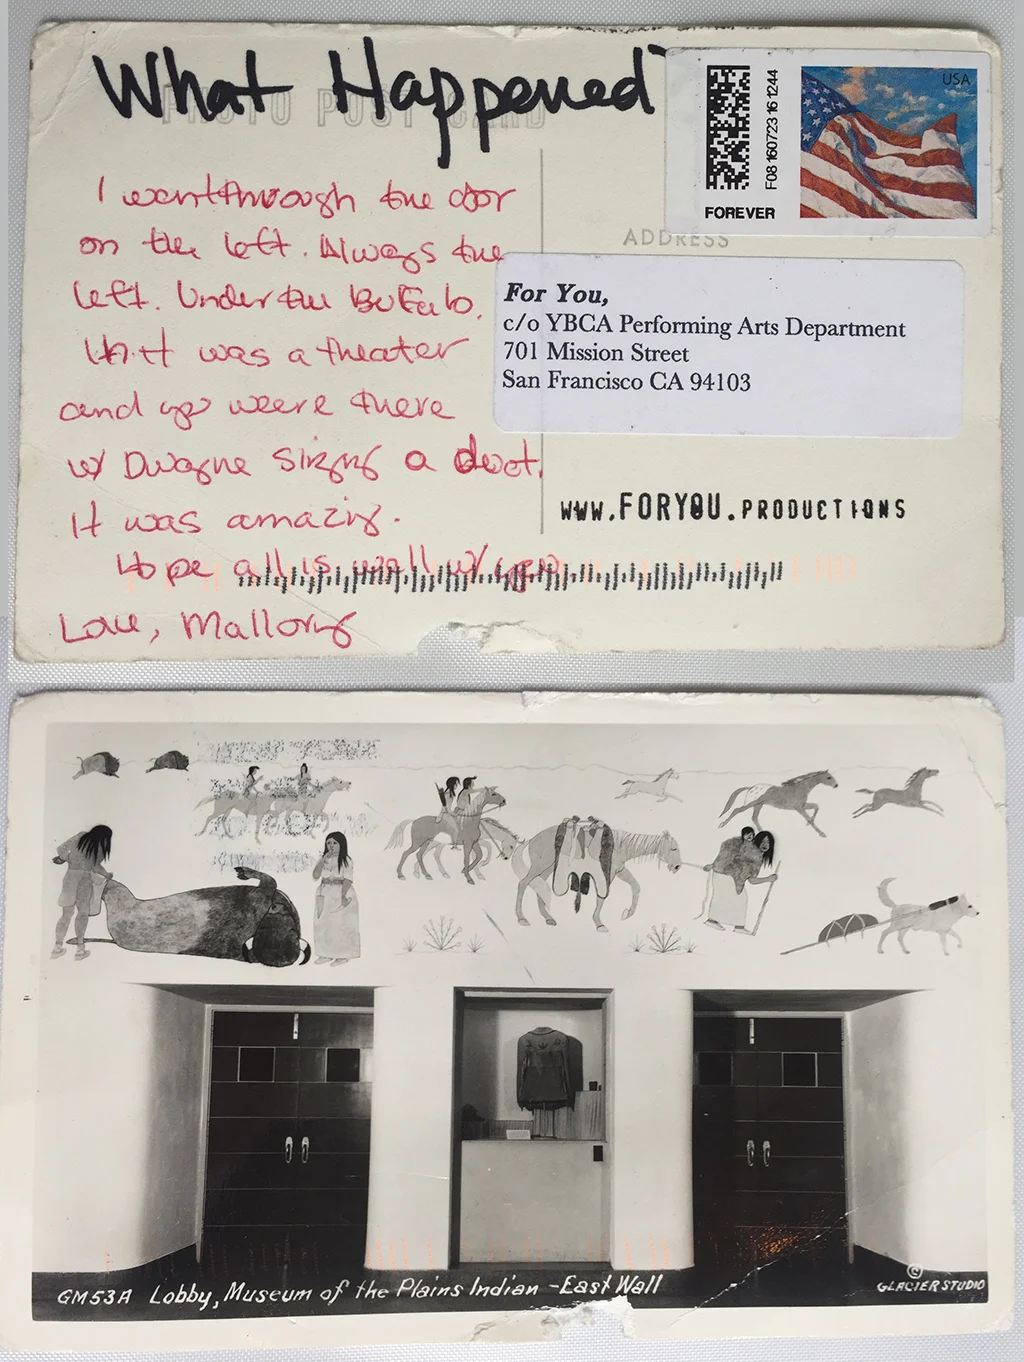 What Happened
PHOTO POST CARD
I went through the door
on the left. Always the
left. Under the Buffalo.
was a theater
and you were there
w/ Dwayne singing a duet.
It was amazing.
Hope all is well w/ you
Love, Mallory
F08 160723 16 1244
FOREVER
USA
ADDRESS
For You,
c/o YBCA Performing Arts Department
701 Mission Street
San Francisco CA 94103
WWW.FORYOU.PRODUCTIONS
GM53A Lobby, Museum of the Plains Indian - East Wall
© GLACIER STUDIO